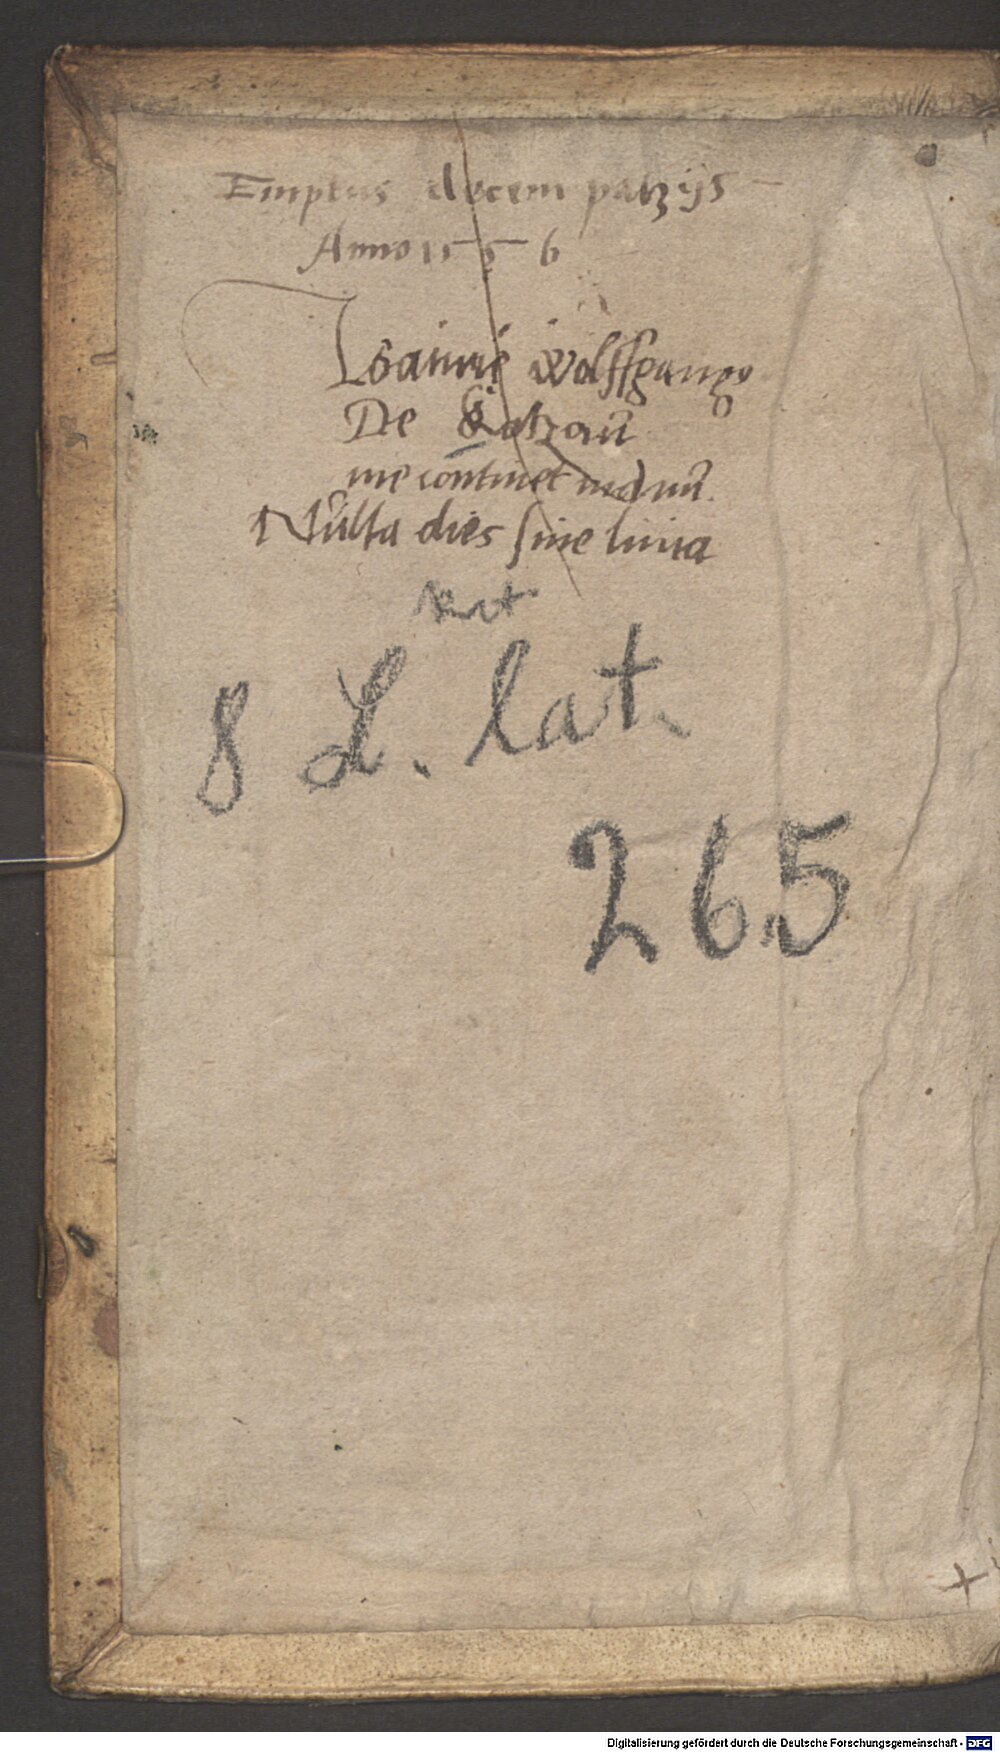 Emptus decem patzijs
Anno 1556
Ioannes Wolffgangus
De
me continet
Nulla dies sine linia
8 L. lat.
265
Digitalisierung gefördert durch die Deutsche Forschungsgemeinschaft - DFG